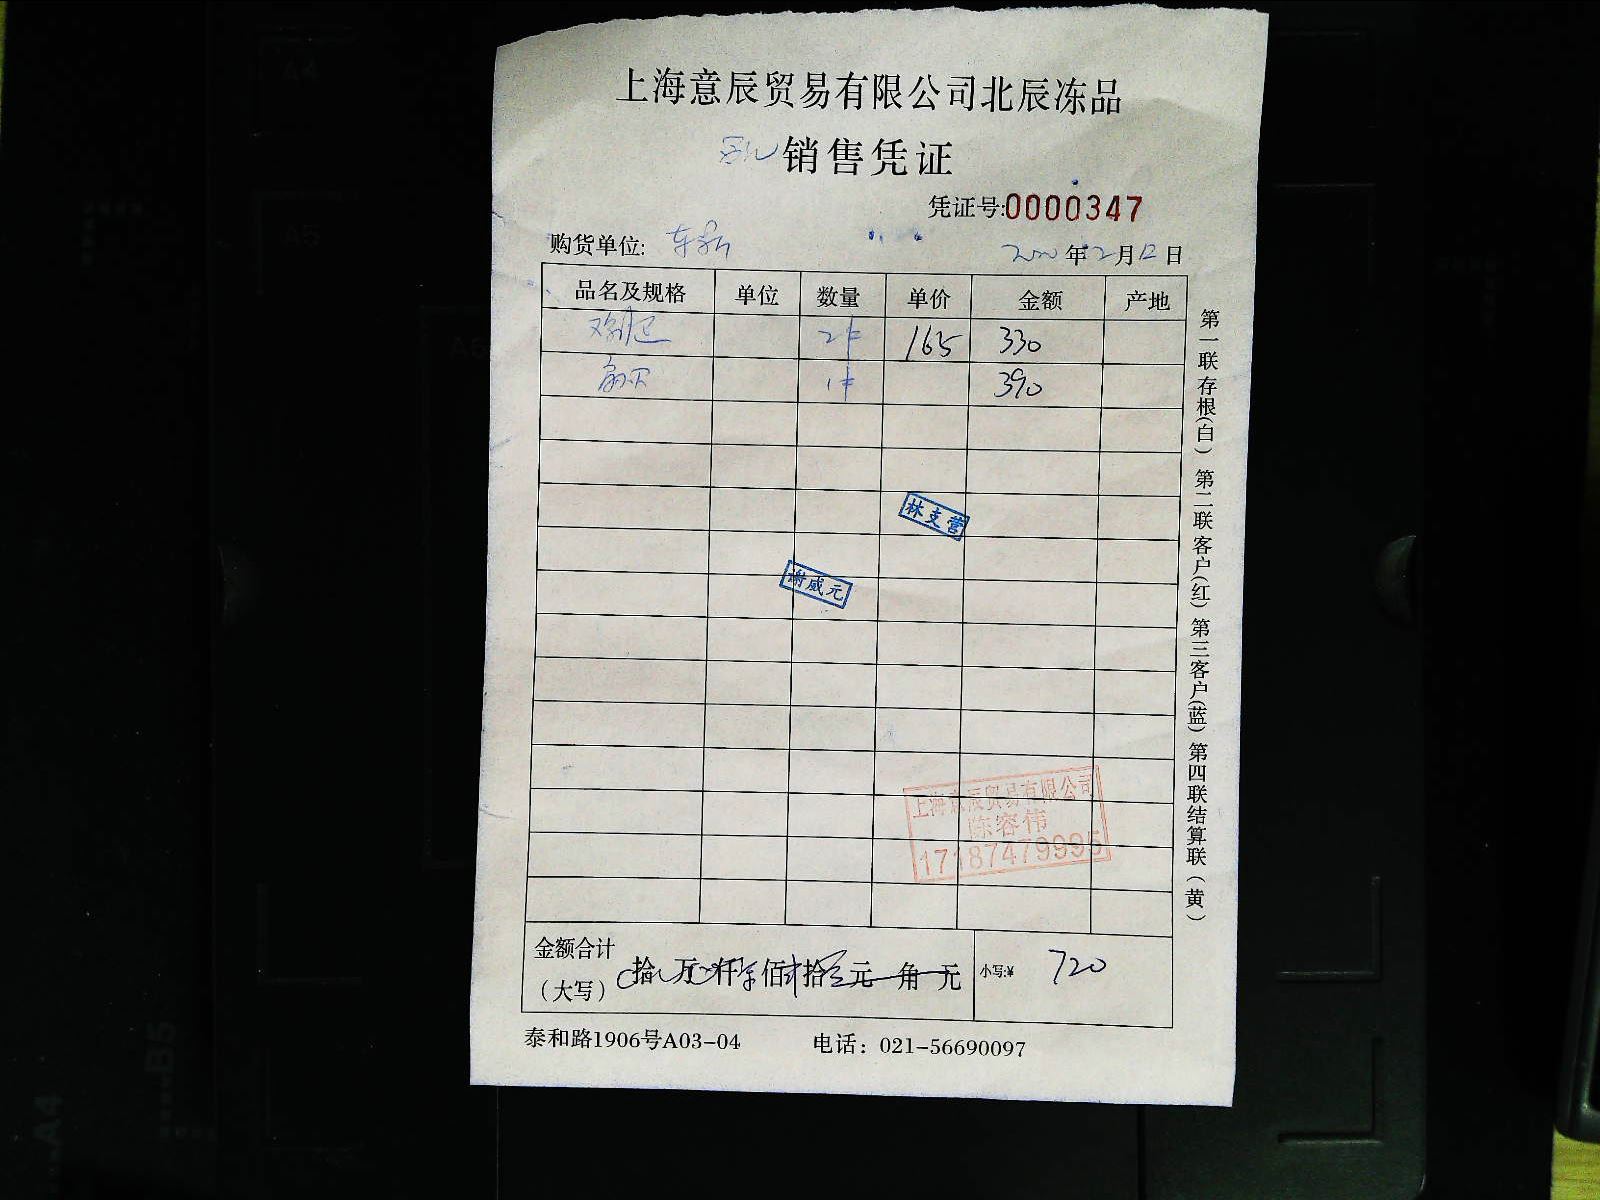 上海意辰贸易有限公司北辰冻品
销售凭证
凭证号:0000347
购货单位: 年2月12日
品名及规格 单位 数量 单价 金额 产地
鸡肫 2件 165 330
1件 390
林支营
谢威元
上海意辰贸易有限公司
陈容伟
17187479995
金额合计
(大写) 拾 万 仟 佰 拾 元 角 元 小写:¥ 720
泰和路1906号A03-04 电话：021-56690097
第一联存根(白) 第二联客户(红) 第三客户(蓝) 第四联结算联(黄)